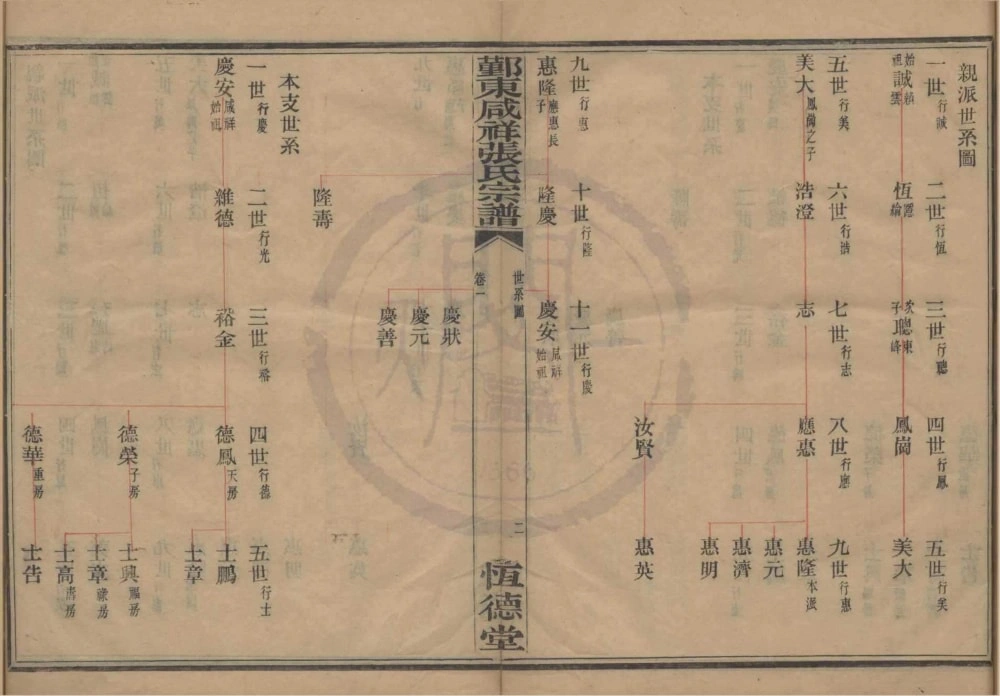 親派世系圖
一世行誠
二世行恆
三世行聰
四世行鳳
五世行美
始祖誠
恆
次子聰東峰
鳳崗
美大
五世行美
六世行浩
七世行志
八世行應
九世行惠
美大鳳崗之子
浩澄
志
應惠
惠隆本派
惠元
惠濟
惠明
汝賢
惠英
九世行惠
十世行隆
十一世行慶
惠隆應惠長子
隆慶
慶安咸祥始祖
慶狀
慶元
慶善
隆壽
鄞東咸祥張氏宗譜
卷一
世系圖
二
恆德堂
本支世系
一世行慶
二世行光
三世行裕
四世行德
五世行士
慶安咸祥始祖
維德
裕金
德鳳天房
士鵬
士章
德榮子房
士興賜房
士章祿房
士高壽房
德華重房
士告